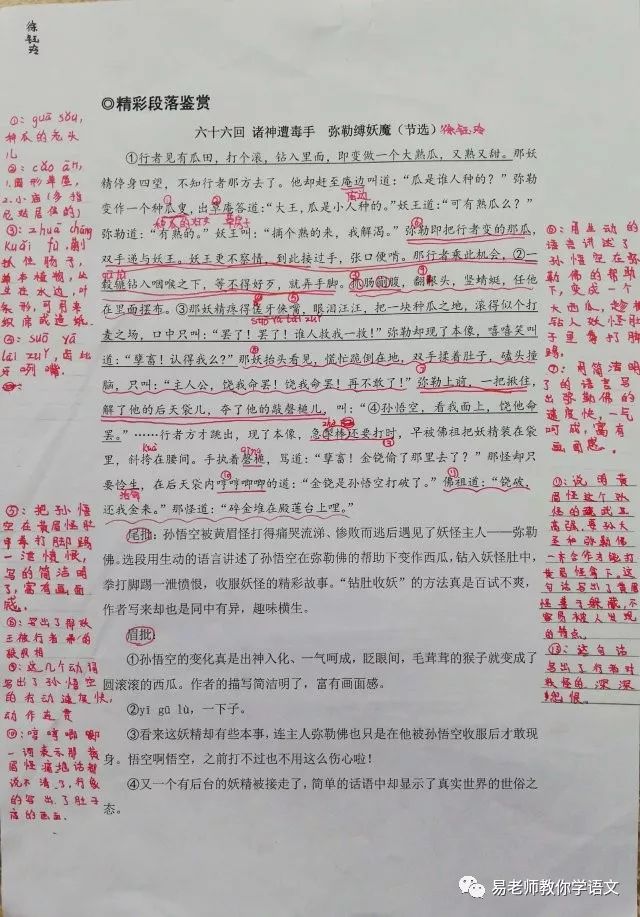 徐钰玲
◎精彩段落鉴赏
六十六回 诸神遭毒手 弥勒缚妖魔（节选）徐钰玲
①行者见有瓜田，打个滚，钻入里面，即变做一个大熟瓜，又熟又甜。那妖
精停身四望，不知行者那方去了。他却赶至庵边叫道：“瓜是谁人种的？”弥勒
变作一个种瓜叟，出草庵答道：“大王,瓜是小人种的。”妖王道：“可有熟瓜么？”
弥勒道：“有熟的。”妖王叫：“摘个熟的来，我解渴。”弥勒即把行者变的那瓜，
双手递与妖王。妖王更不察情，到此接过手，张口便啃。那行者乘此机会，②一
毂辘钻入咽喉之下，等不得好歹，就弄手脚。抓肠蒯腹，翻跟头，竖蜻蜓，任他
在里面摆布。③那妖精疼得傞牙倈嘴，眼泪汪汪，把一块种瓜之地，滚得似个打
suō yá lái zuǐ
麦之场，口中只叫：“罢了！罢了！谁人救我一救！”弥勒却现了本像，嘻嘻笑叫
道：“孽畜！认得我么？”那妖抬头看见，慌忙跪倒在地，双手揉着肚子，磕头撞
脑，只叫：“主人公，饶我命罢！饶我命罢！再不敢了！”弥勒上前，一把揪住，
解了他的后天袋儿，夺了他的敲磬槌儿，叫：“④孙悟空，看我面上，饶他命
罢。”……行者方才跳出，现了本像，急掣棒还要打时，早被佛祖把妖精装在袋
里，斜挎在腰间。手执着磬槌，骂道：“孽畜！金铙偷了那里去了？”那怪却只
要怜生，在后天袋内哼哼唧唧的道：“金铙是孙悟空打破了。”佛祖道：“铙破，
还我金来。”那怪道：“碎金堆在殿莲台上哩。”
尾批：孙悟空被黄眉怪打得痛哭流涕、惨败而逃后遇见了妖怪主人——弥勒
佛。选段用生动的语言讲述了孙悟空在弥勒佛的帮助下变作西瓜，钻入妖怪肚中，
拳打脚踢一泄愤恨，收服妖怪的精彩故事。“钻肚收妖”的方法真是百试不爽，
作者写来却也是同中有异，趣味横生。
眉批：
①孙悟空的变化真是出神入化、一气呵成，眨眼间，毛茸茸的猴子就变成了
圆滚滚的西瓜。作者的描写简洁明了，富有画面感。
②yī gū lù，一下子。
③看来这妖精却有些本事，连主人弥勒佛也只是在他被孙悟空收服后才敢现
身。悟空啊悟空，之前打不过也不用这么伤心啦！
④又一个有后台的妖精被接走了，简单的话语中却显示了真实世界的世俗之
态。
①：guā sǒu，
种瓜的老头
儿
②：cǎo ān，
1.圆形草屋，
2.小庙(多指
尼姑居住的)
③：zhuā cháng
kuǎi fù，
抓住肠子，
④：suō yá
lái zuǐ
咧嘴。
⑤：把孙悟
空在黄眉怪肚
中拳打脚踢
一泄愤恨，
写的简洁明
了，富有画面
感。
⑧：写出了那妖
王被行者弄的
⑨：这几个动词
写出了孙悟空
的行动速度快，
动作连贯
⑩：哼哼唧唧
一词表示那黄
眉怪痛地话都
说不清了，形象
的写出了肚子
痛的画面.
⑥：用生动的
语言讲述了
孙悟空在弥
勒佛的帮助
下，变成一个
大西瓜，趁机
钻入妖怪肚
子里拳打脚
踢.
⑦：用简洁明
了的语言写
出弥勒佛的
速度快，一气
呵成，富有
画面感.
⑪：说明黄
眉怪这个妖
怪的藏武工
高强，要孙大
圣和弥勒佛
一来合作才能打
黄眉怪拿下。这
句话写出了黄眉
怪善于躲藏，不
容易被人发现
的特点.
⑬：这句话
写出了行者对
妖怪的深深
怨恨.
易老师教你学语文